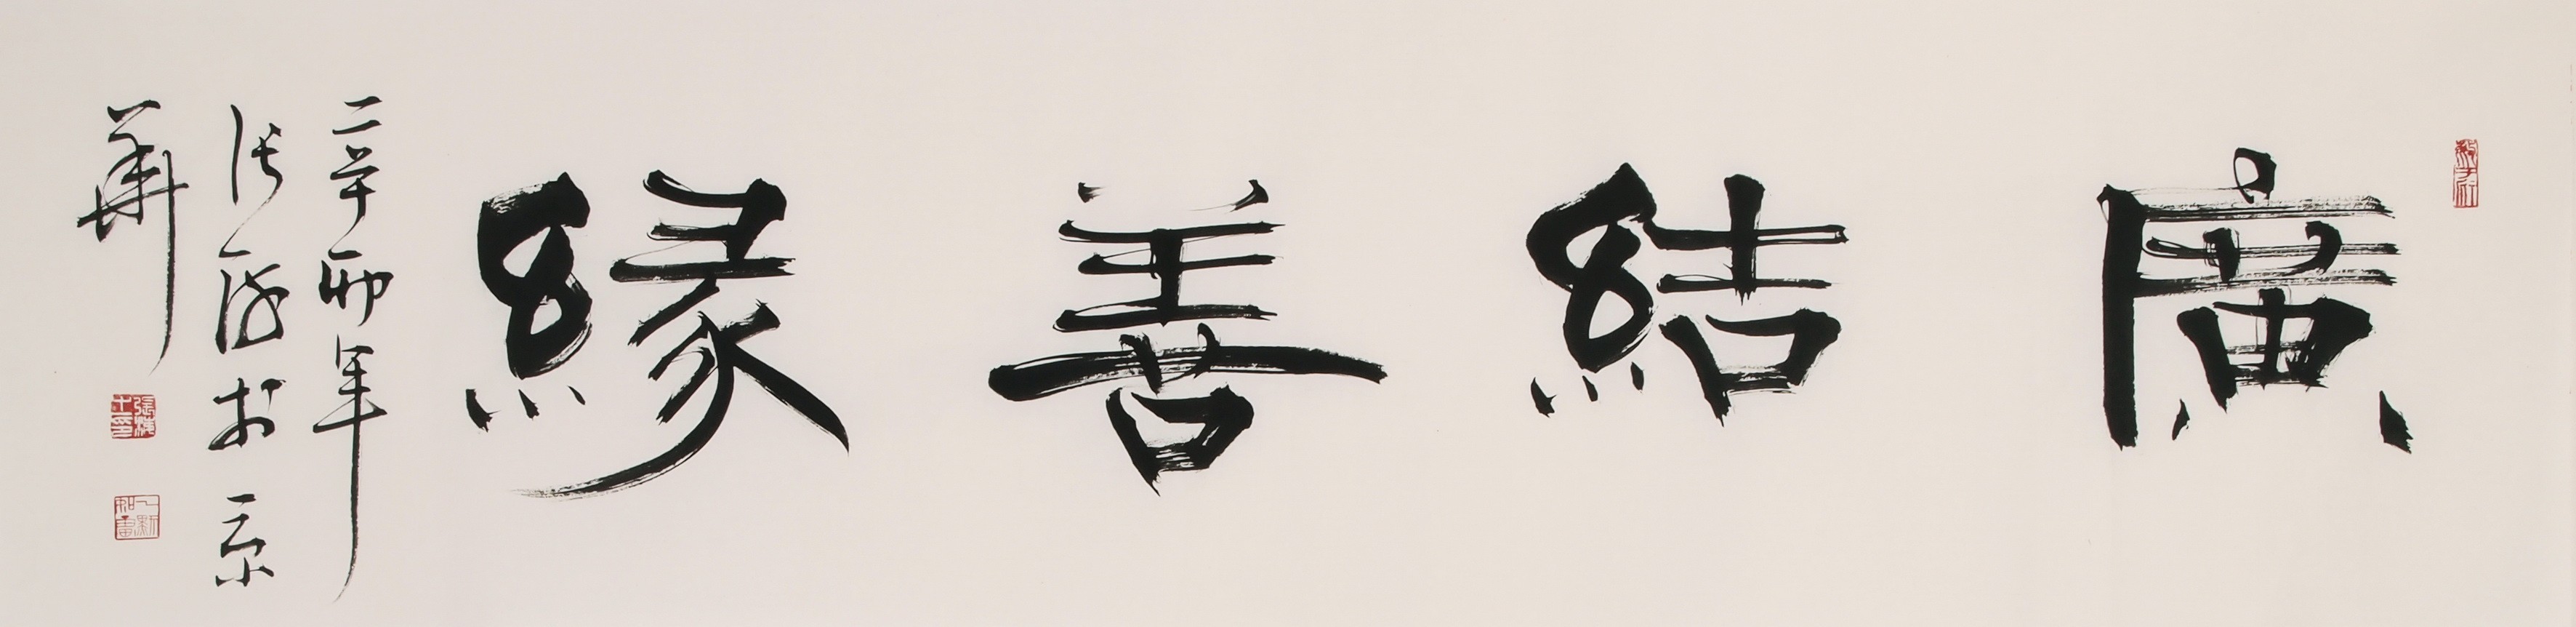 廣結善緣
辛卯年
張於京
華